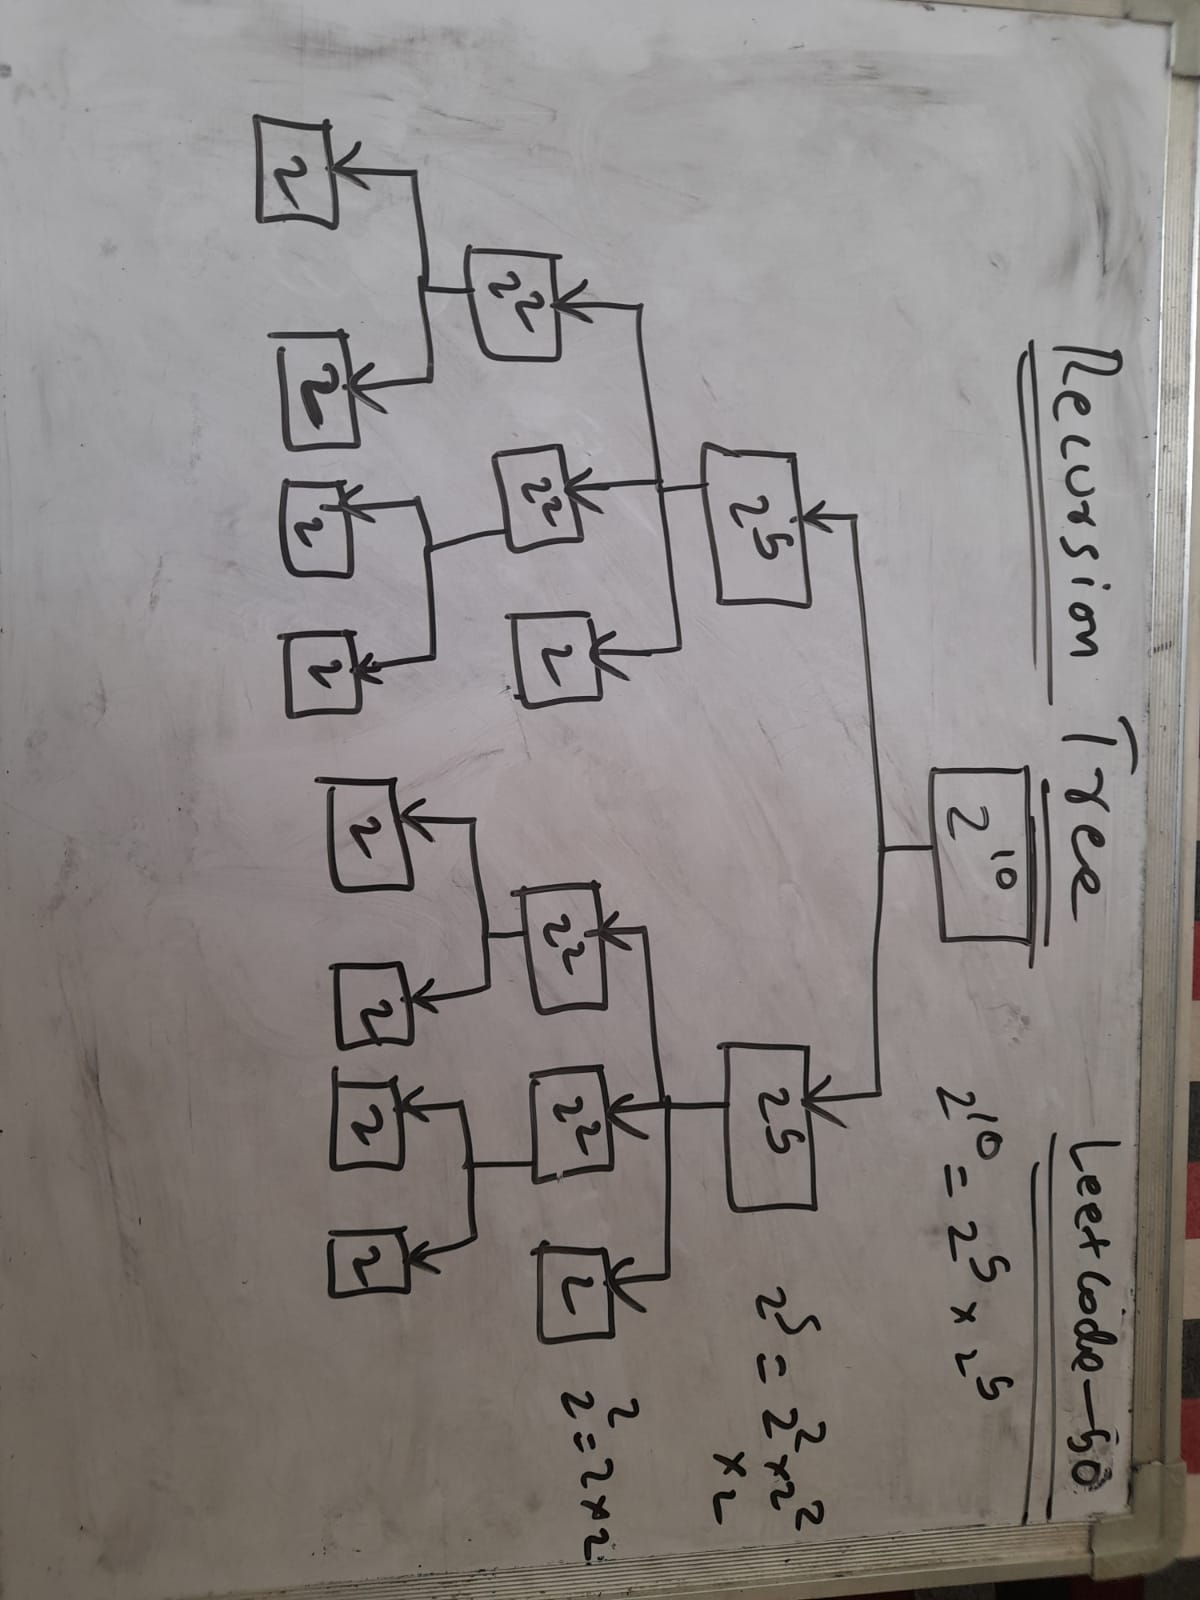 Recursion Tree Leetcode-50
2^10 2^10 = 2^5 x 2^5
2^5 2^5 2^5 = 2^2 x 2^2
x 2
2^2 2^2 2 2^2 2^2 2 2^2 = 2 x 2
2 2 2 2 2 2 2 2